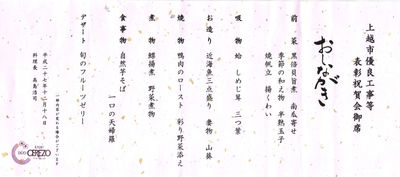 上越市優良工事等
表彰祝賀会御席
おしながき
前菜 黒海貝旨煮 南瓜寄せ
季節の和え物 半熟玉子
焼帆立 揚くわい
吸物 蛤 しめじ茸 三つ葉
お造り 近海魚三点盛り 妻物 山葵
焼物 鴨肉のロースト 彩り野菜添え
煮物 鰈揚煮 野菜煮物
食事物 自然芋そば
一口の天婦羅
デザート 旬のフルーツゼリー
一部内容が変わる場合がございます
平成二十七年十二月十八日
料理長 高島浩司
CEREZO